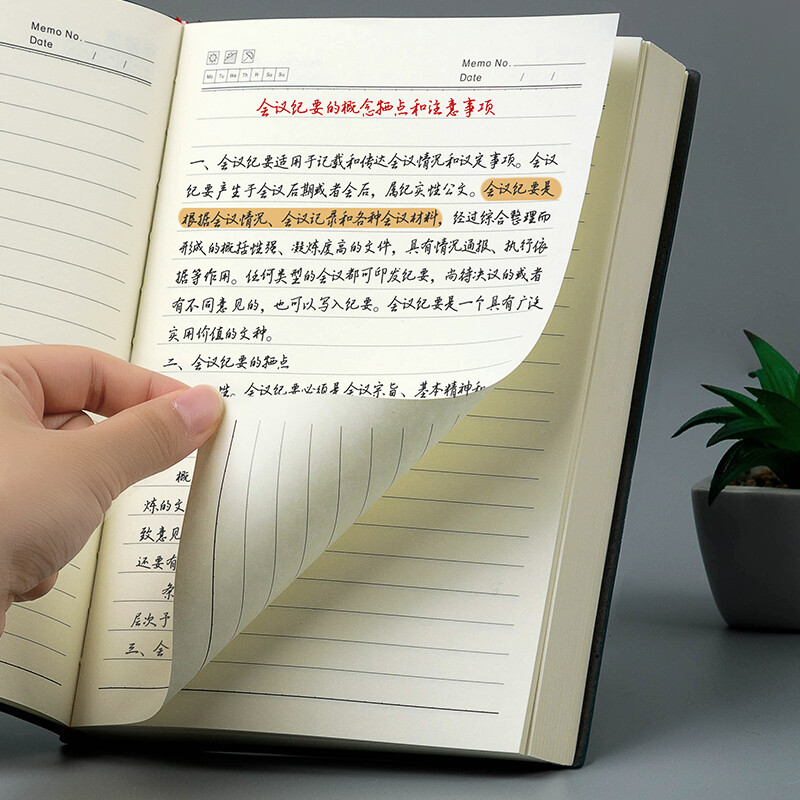 Memo No.
Date / /
Memo No.
Date / /
Mo Tu We Th Fr Sa Su
会议纪要的概念特点和注意事项
一、会议纪要适用于记载和传达会议情况和议定事项。会议
纪要产生于会议后期或者会后，属纪实性公文。会议纪要是
根据会议情况、会议记录和各种会议材料，经过综合整理而
形成的概括性强、凝炼度高的文件，具有情况通报、执行依
据等作用。任何类型的会议都可印发纪要，尚待决议的或者
有不同意见的，也可以写入纪要。会议纪要是一个具有广泛
实用价值的文种。
二、会议纪要的特点
性。会议纪要必须是会议宗旨、基本精神和
概
炼的文
致意见
还要有
条
层次予
三、会